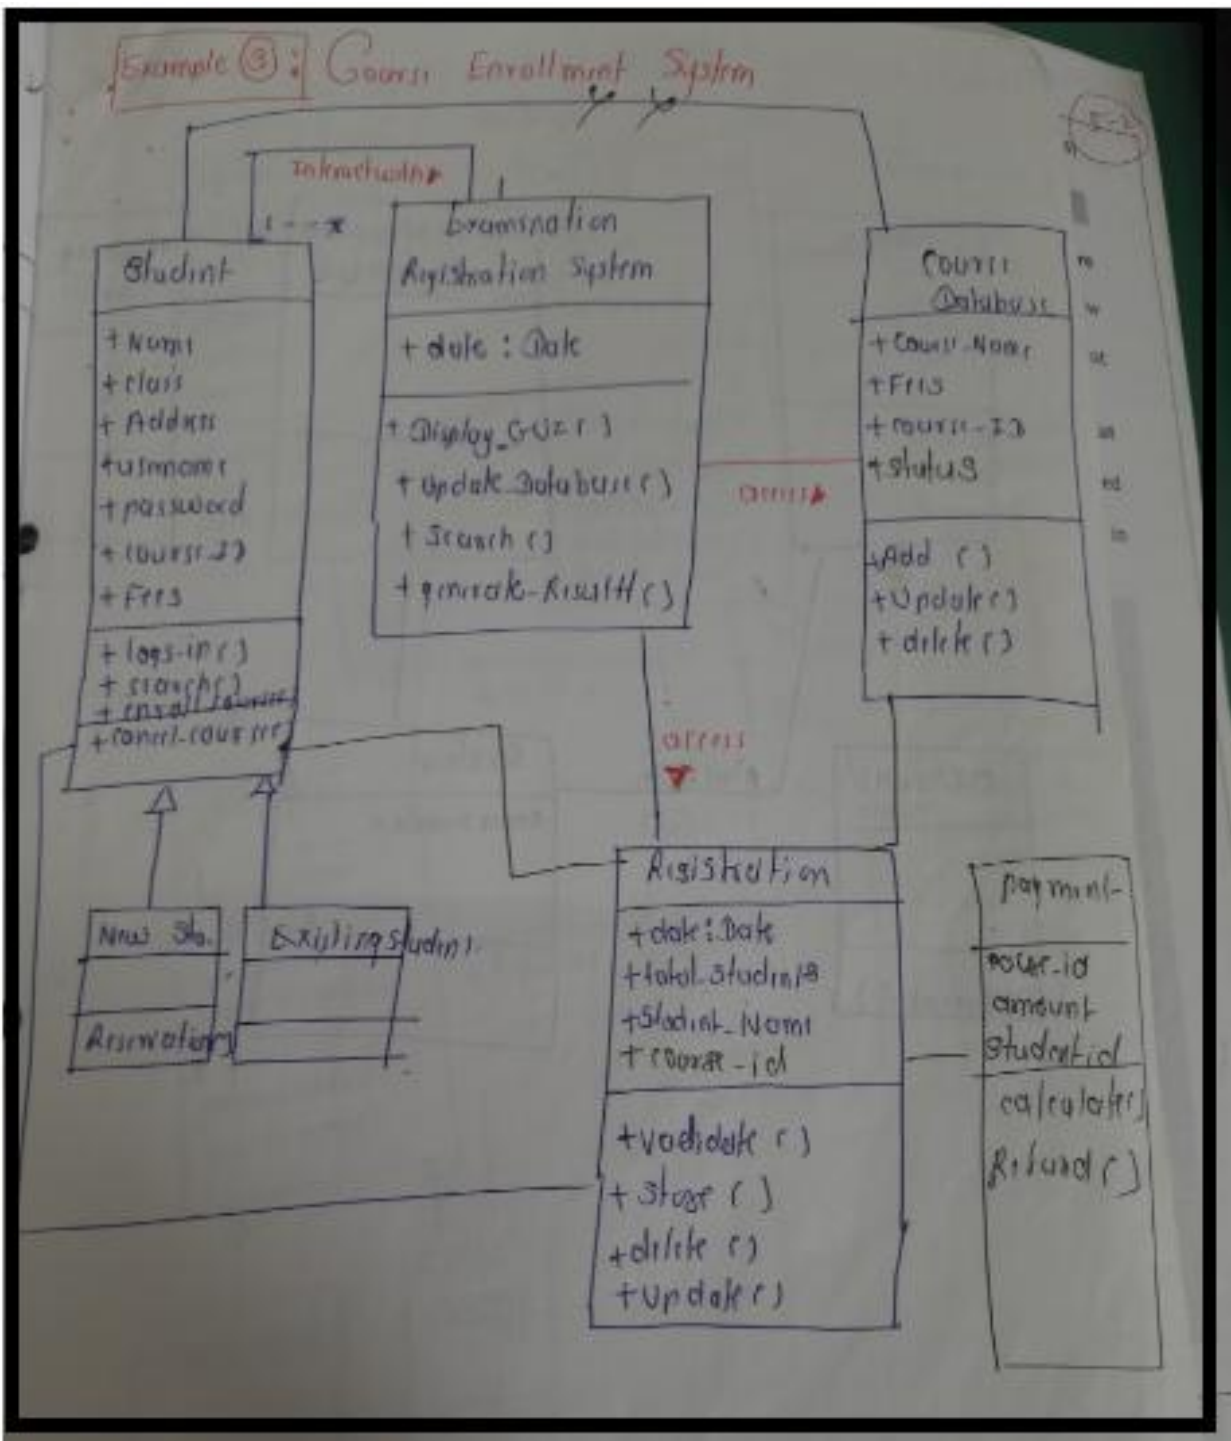 Example ③: Course Enrollment System
Interaction
1
1 - - *
Student
+ Name
+ class
+ Address
+ username
+ password
+ course_ID
+ Fees
+ logs-in ( )
+ search( )
+ enroll_course
+ cancel-course
Examination
Registration System
+ date : Date
+ Display_GUI ( )
+ Update_Database ( )
+ Search ( )
+ generate-Result ( )
access
Course
Database
+ Course_Name
+ Fees
+ course-ID
+ status
+ Add ( )
+ Update ( )
+ delete ( )
access
New Stu.
Reservation
Existing Students
Registration
+ date : Date
+ total_students
+ Student_Name
+ course-id
+ validate ( )
+ Store ( )
+ delete ( )
+ Update ( )
payment
amount
student id
calculate( )
Refund ( )